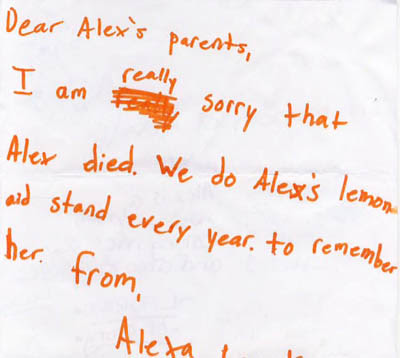 Dear Alex's parents,
I am really sorry that
Alex died. We do Alex's lemon
aid stand every year. to remember
her. From,
Alexa